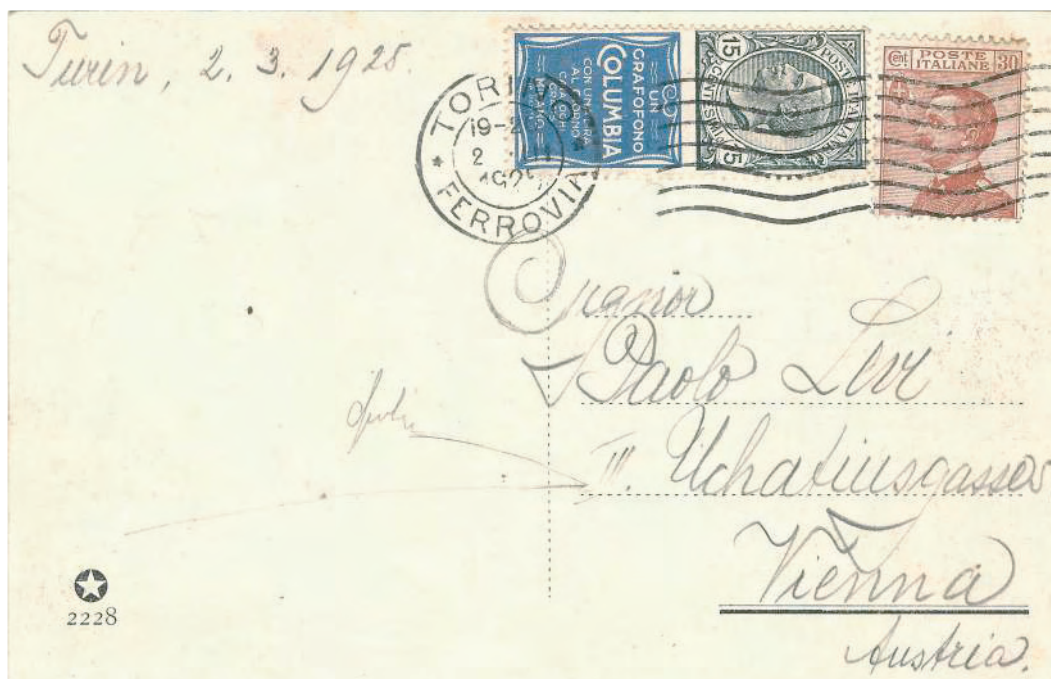 Turin, 2. 3. 1925.
UN
GRAFOFONO
COLUMBIA
CON UNA LIRA
AL GIORNO
CATALOGHI
MILANO
15 CENTESIMI 15
POSTE ITALIANE
Cent POSTE 30
ITALIANE
TORINO
FERROVIA
Signor
Paolo Levi
III. Uchatiusgasse
Vienna
Austria.
2228